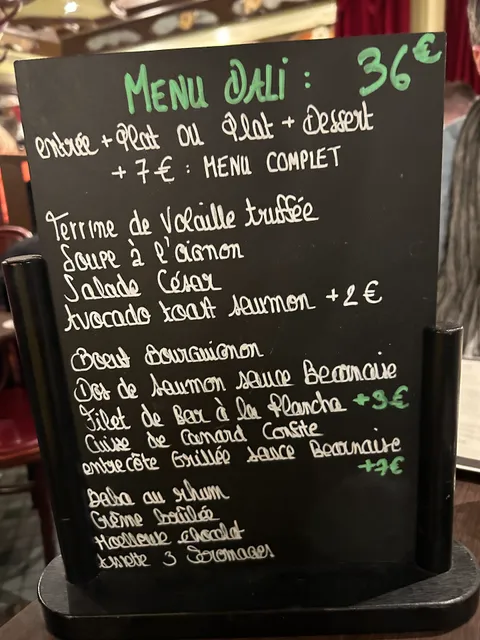 MENU DALI : 36€
entrée + Plat ou Plat + Dessert
+ 7€ : MENU COMPLET
Terrine de Volaille truffée
Soupe à l'oignon
Salade César
Avocado toast saumon +2€
Bœuf Bourguignon
Dos de saumon sauce Bearnaise
Filet de Bar à la Plancha +3€
Cuise de canard Confite
entrecôte Grillée sauce Bearnaise
+7€
Baba au rhum
Crème brûlée
Moelleux chocolat
Assiette 3 Fromages